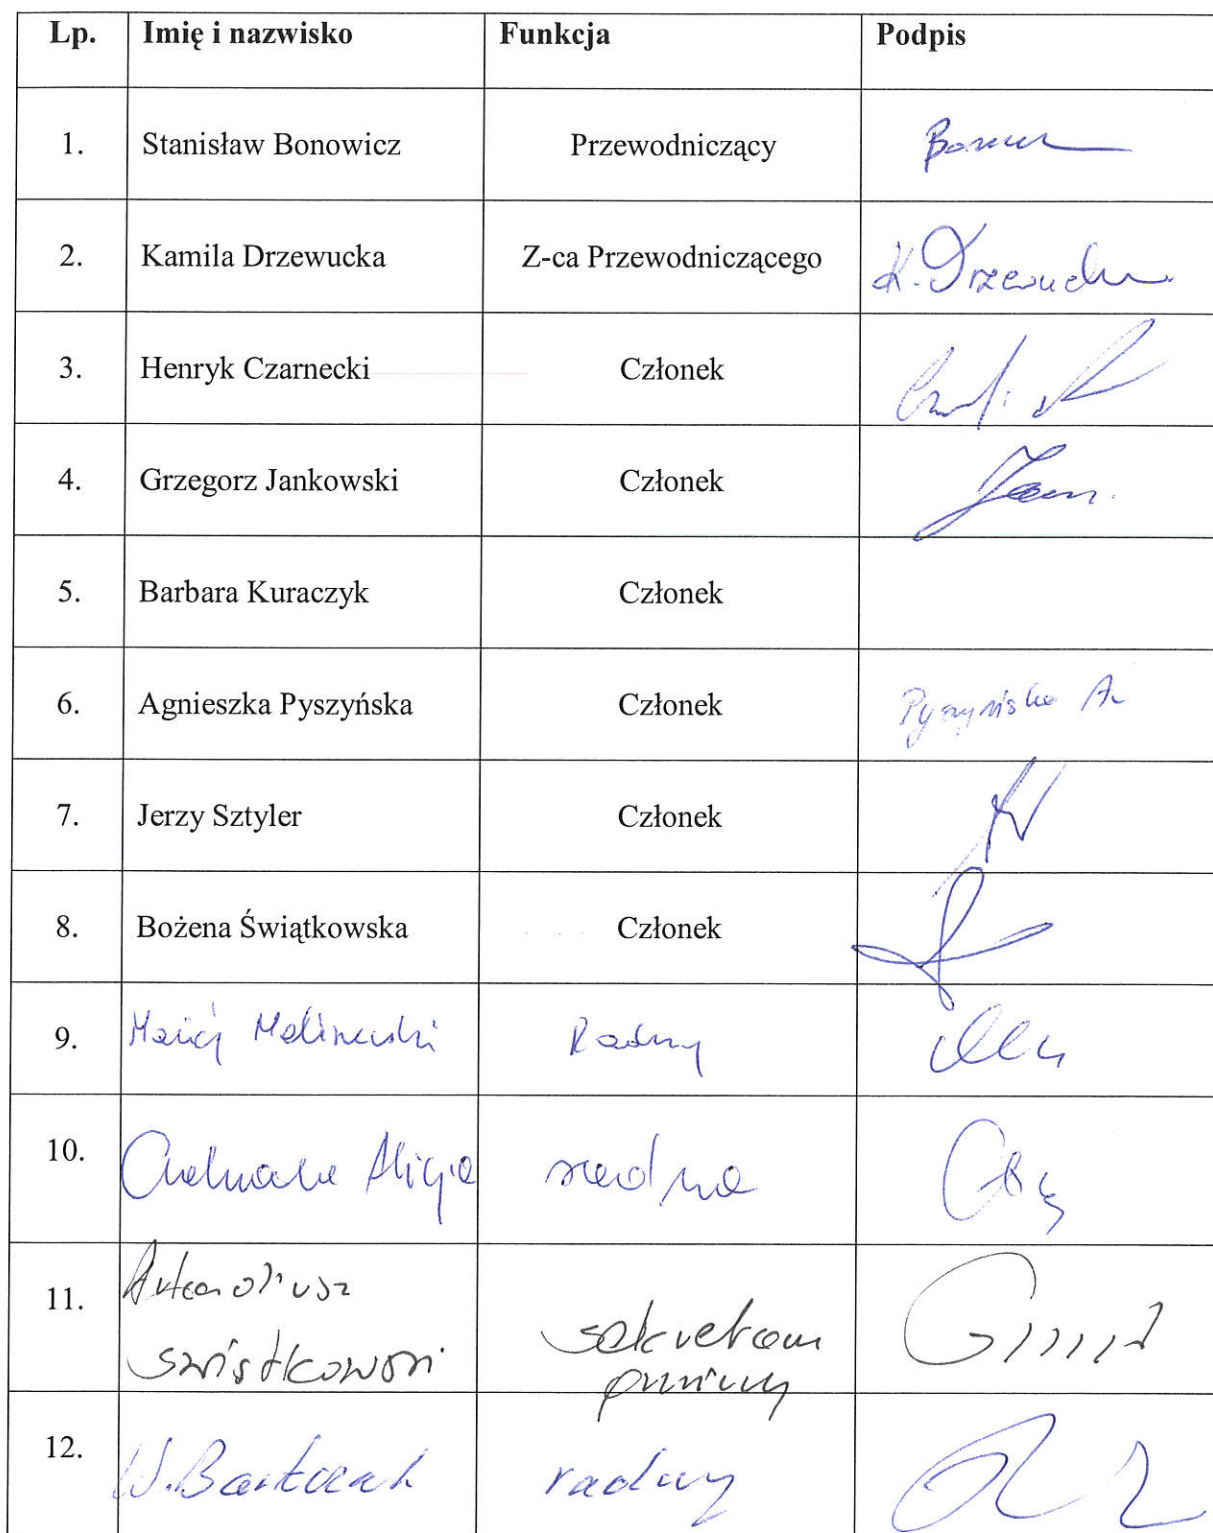 Lp. Imię i nazwisko Funkcja Podpis
1. Stanisław Bonowicz Przewodniczący
2. Kamila Drzewucka Z-ca Przewodniczącego K. Drzewucka
3. Henryk Czarnecki Członek
4. Grzegorz Jankowski Członek
5. Barbara Kuraczyk Członek
6. Agnieszka Pyszyńska Członek Pyszyńska A
7. Jerzy Sztyler Członek
8. Bożena Świątkowska Członek
9. Maciej Malinowski Radny
10. Alicja radna
11.
sekretarz
gminy
12. W. Bartczak radny